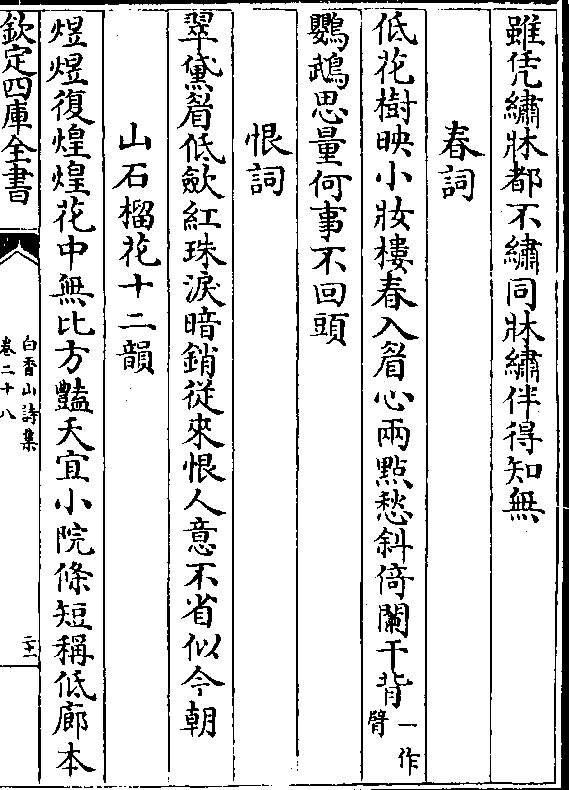 雖凭繡牀都不繡同牀繡伴得知無
春詞
低花樹映小妝樓春入眉心兩點愁斜倚闌干背一作臂
鸚鵡思量何事不回頭
恨詞
翠黛眉低歛紅珠淚暗銷從來恨人意不省似今朝
山石榴花十二韻
煜煜復煌煌花中無比方豔夭宜小院條短稱低廊本
欽定四庫全書
白香山詩集
卷二十八